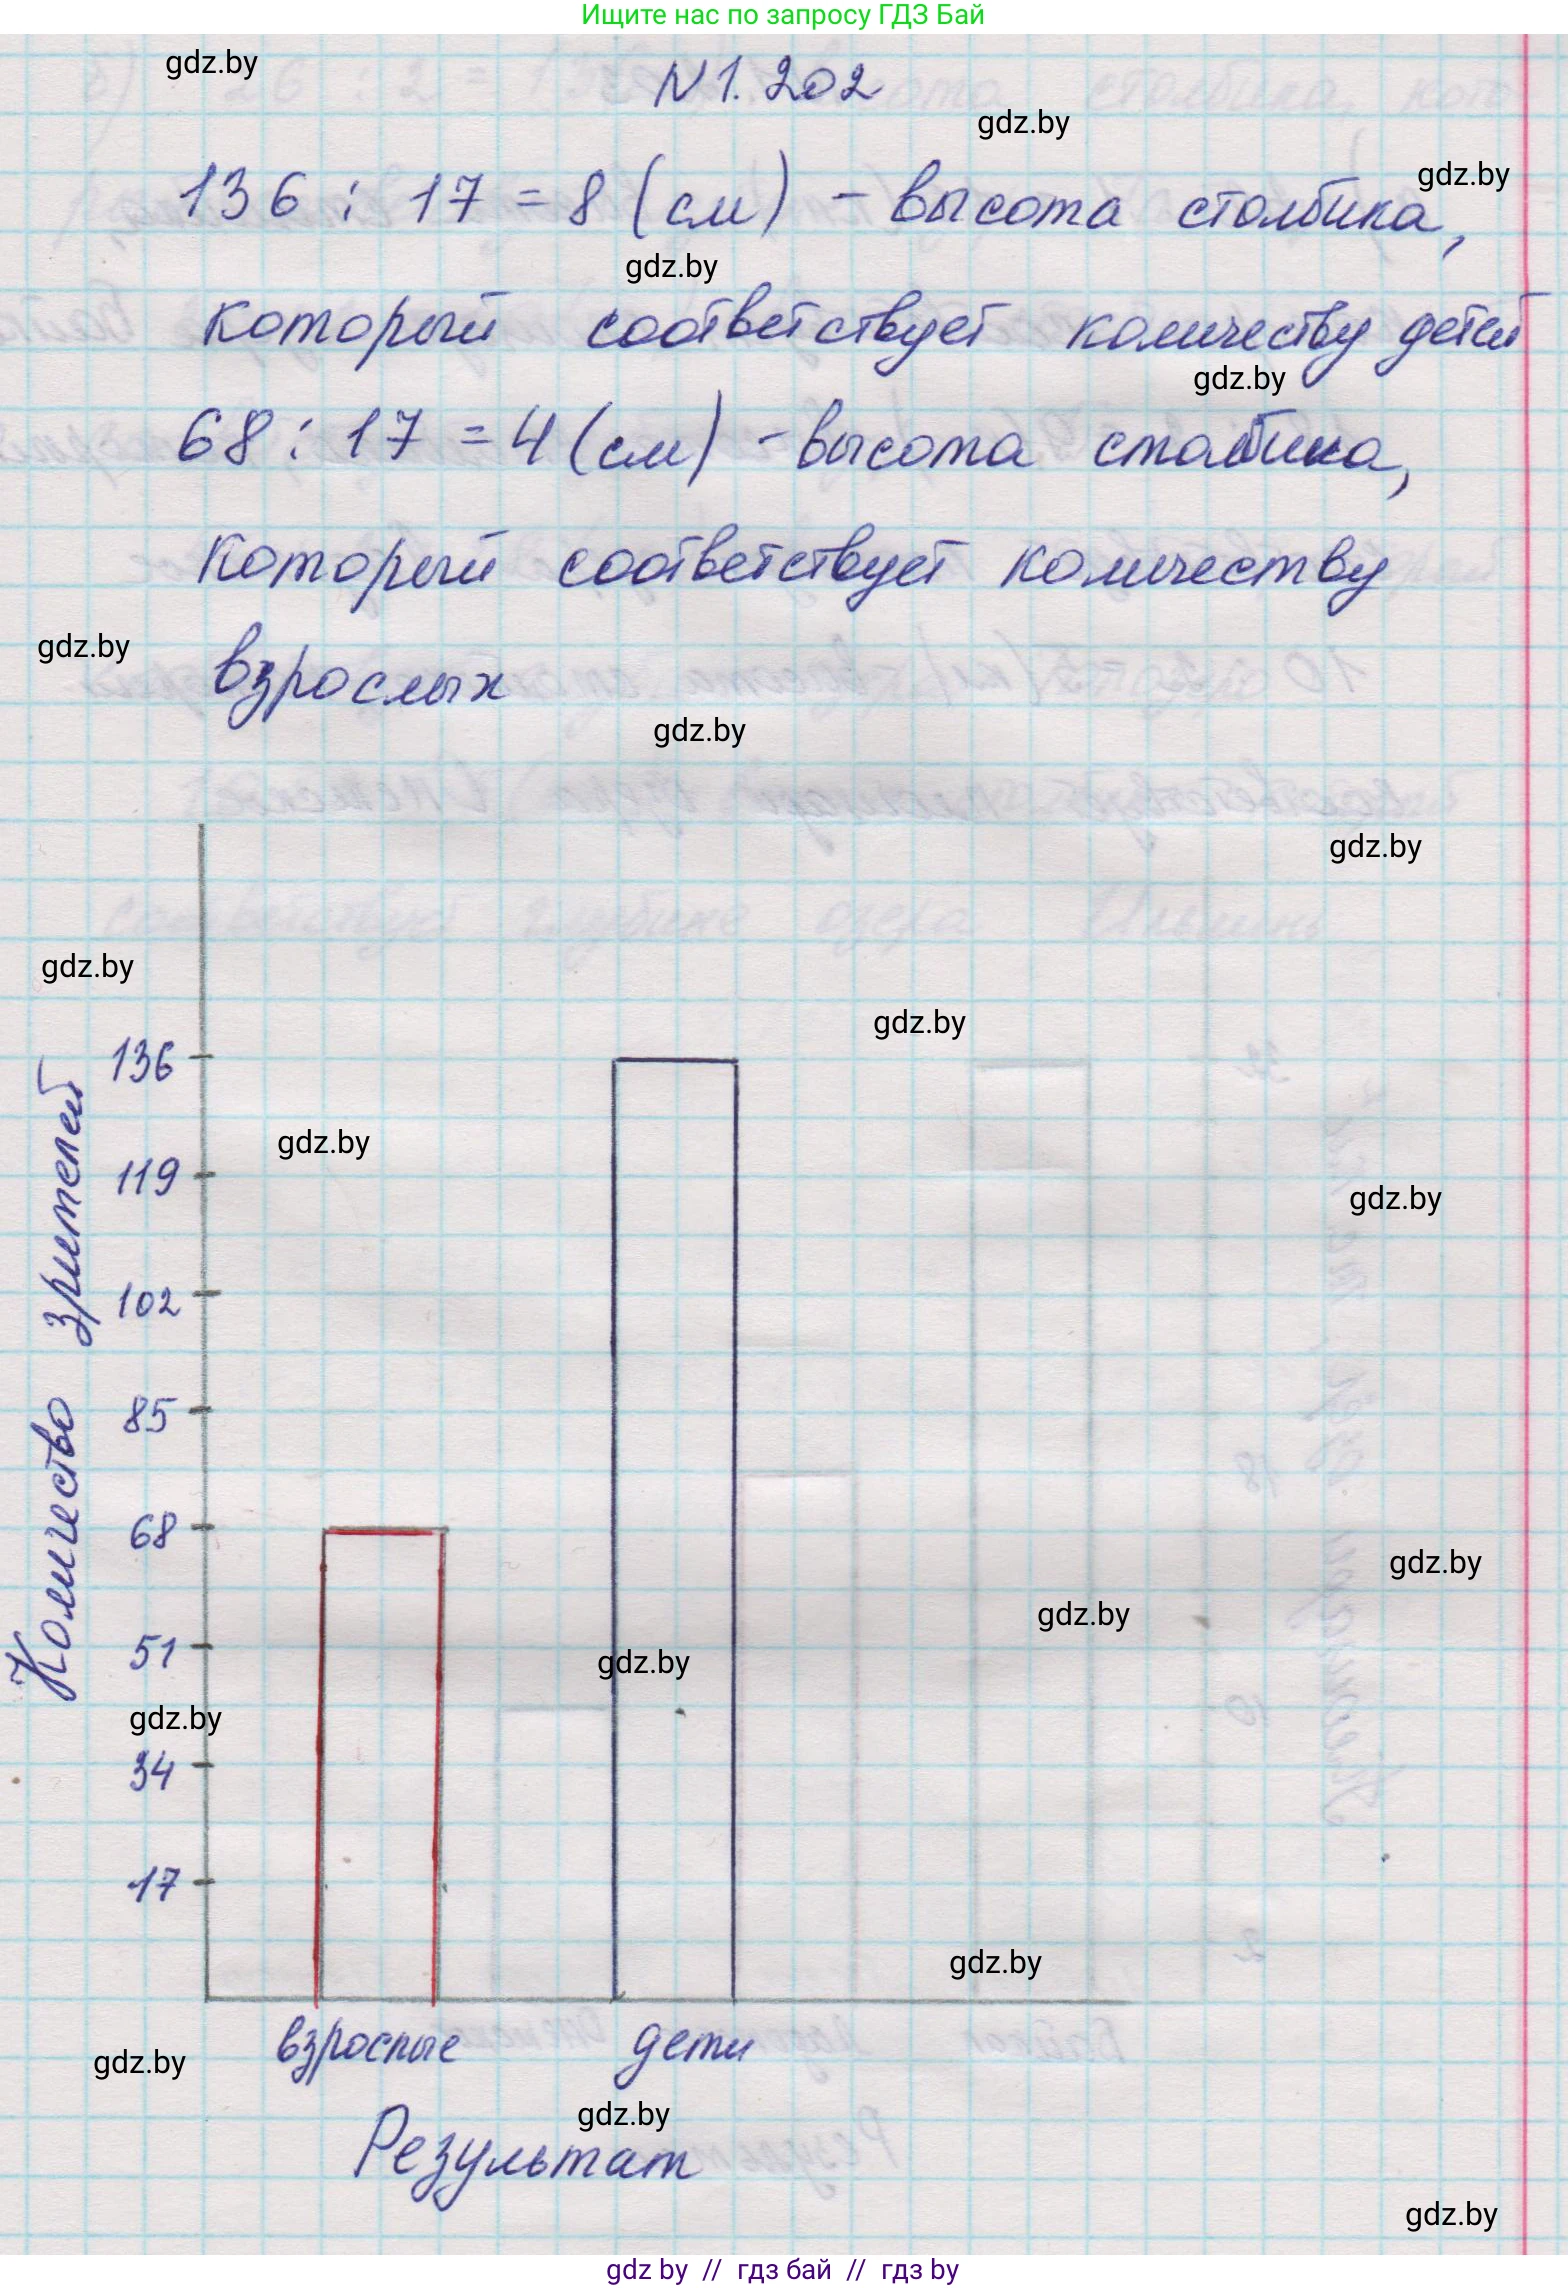 Ищите нас по запросу ГДЗ Бай
gdz.by
N 1.202
gdz.by
gdz.by
136 : 17 = 8 (см) - высота столбика,
gdz.by
который соответствует количеству детей
gdz.by
68 : 17 = 4 (см) - высота столбика,
который соответствует количеству
gdz.by
взрослых
gdz.by
gdz.by
gdz.by
gdz.by
Количество зрителей
136
gdz.by
119
gdz.by
102
85
68
gdz.by
gdz.by
51
gdz.by
gdz.by
34
17
gdz.by
взрослые дети
gdz.by
gdz.by
Результат
gdz.by
gdz by // гдз бай // гдз by